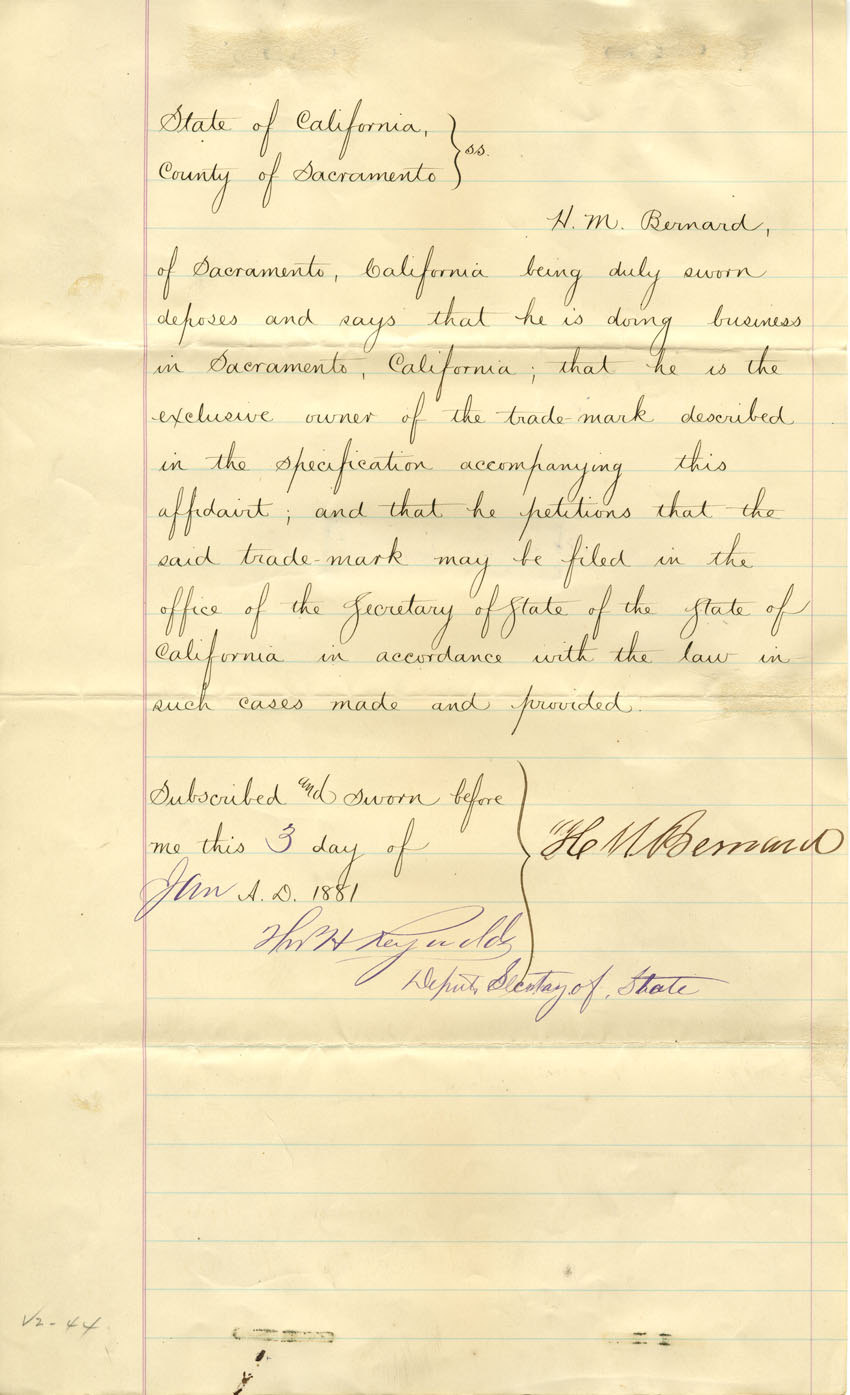 State of California,
County of Sacramento } ss.
H. M. Bernard,
of Sacramento, California being duly sworn
deposes and says that he is doing business
in Sacramento, California; that he is the
exclusive owner of the trade-mark described
in the specification accompanying this
affidavit; and that he petitions that the
said trade-mark may be filed in the
office of the Secretary of State of the State of
California in accordance with the law in
such cases made and provided.
Subscribed and sworn before
me this 3 day of
Jan A. D. 1881
H M Bernard
Thos H Reynolds
Deputy Secretary of State
V2-44